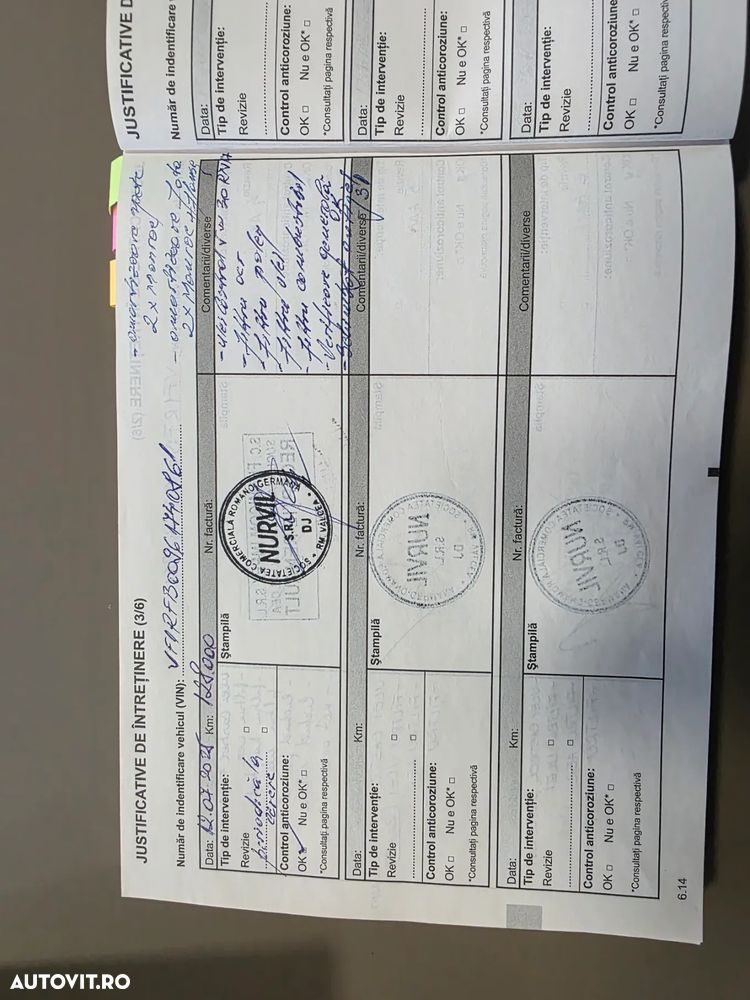 JUSTIFICATIVE DE ÎNTREȚINERE (3/6)
Număr de indentificare vehicul (VIN):
- amortizoare
2x Monroe
- amortizoare fata
2x Monroe
Data: 12.07.2025 Km: 128.000 Nr. factură: Comentarii/diverse
Tip de intervenție:
Revizie □
periodică la
cerere □
Control anticoroziune:
OK Nu e OK* □
*Consultați pagina respectivă
Ștampilă
SOCIETATEA COMERCIALĂ ROMANO GERMANA
NURVIL
S.R.L.
DJ
RM VALCEA
- filtru aer
- filtru polen
- filtru ulei
- filtru combustibil
- Verificare generală
OK
- Schimbat antigel
Data: Km: Nr. factură: Comentarii/diverse
Tip de intervenție:
Revizie □
□
Control anticoroziune:
OK □ Nu e OK* □
*Consultați pagina respectivă
Ștampilă
NURVIL
SRL
DJ
Data: Km: Nr. factură: Comentarii/diverse
Tip de intervenție:
Revizie □
□
Control anticoroziune:
OK □ Nu e OK* □
*Consultați pagina respectivă
Ștampilă
NURVIL
SRL
DJ
6.14
JUSTIFICATIVE D
Număr de indentificare v
Data:
Tip de intervenție:
Revizie
Control anticoroziune:
OK □ Nu e OK* □
*Consultați pagina respectivă
Data:
Tip de intervenție:
Revizie
Control anticoroziune:
OK □ Nu e OK* □
*Consultați pagina respectivă
Data:
Tip de intervenție:
Revizie
Control anticoroziune:
OK □ Nu e OK*
*Consultați pagina respectivă
AUTOVIT.RO